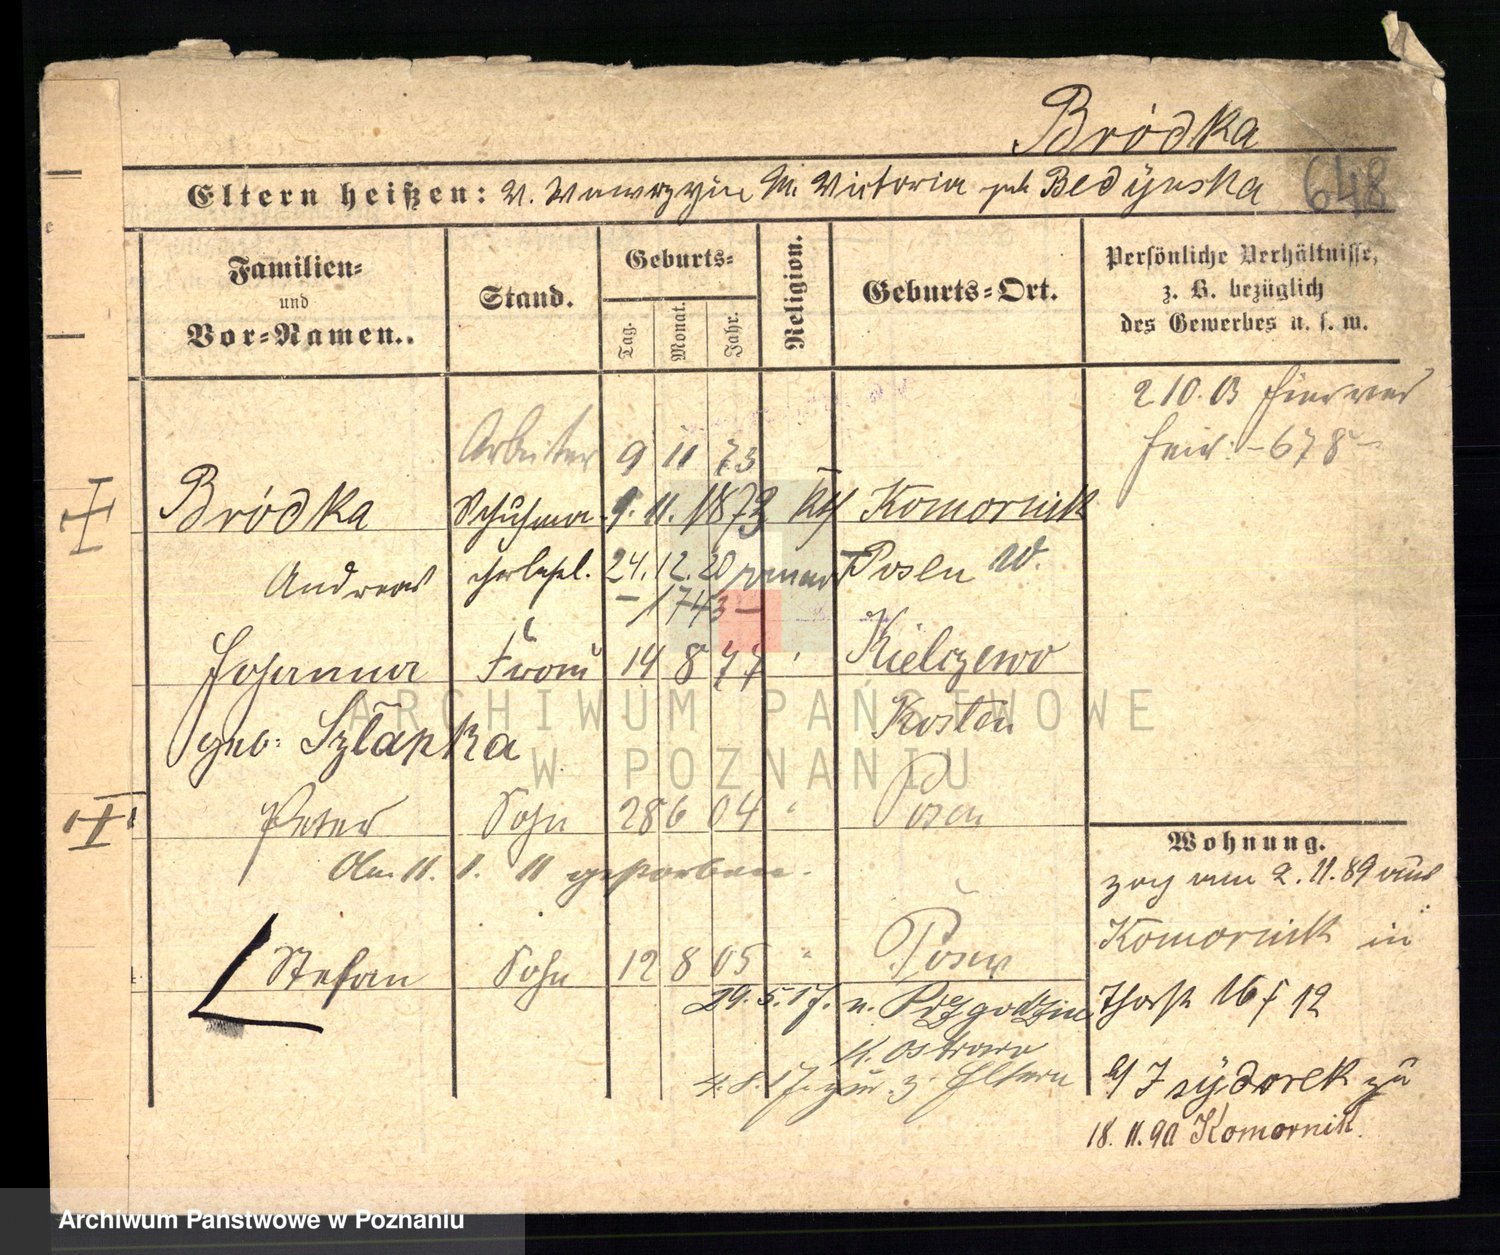 Bródka
648
Eltern heißen: V. Wawrzyin M. Victoria geb Bedÿnska
Familien- und Vor-Namen..
Stand.
Geburts-
Tag. Monat. Jahr.
Religion.
Geburts-Ort.
Persönliche Verhältnisse, z. B. bezüglich des Gewerbes u. s. w.
2 10. 03
- 678 -
Arbeiter 9 11 73
Bródka Schuhma- 9. 11. 1873 kth Komornik
Andreas 24. 12. 20 Posen W.
- 1743 -
Johanna Frau 14 8 77 " Kielczewo
geb. Szlapka Kosten
Peter Sohn 28 6 04 " Posen
Am 11. 1. 11 gestorben.
Stefan Sohn 12 8 05 " Posen
29. 5. 17. n. Przygodzin
K. Ostrowo
4. 8. 17. zur. z. Eltern
Wohnung.
zog am 2. 11. 89 aus
Komornik in
Thorst 16 f 12
b/ Isÿdorek zu
18. 11. 90 Komornik.
ARCHIWUM PAŃSTWOWE
W POZNANIU
Archiwum Państwowe w Poznaniu